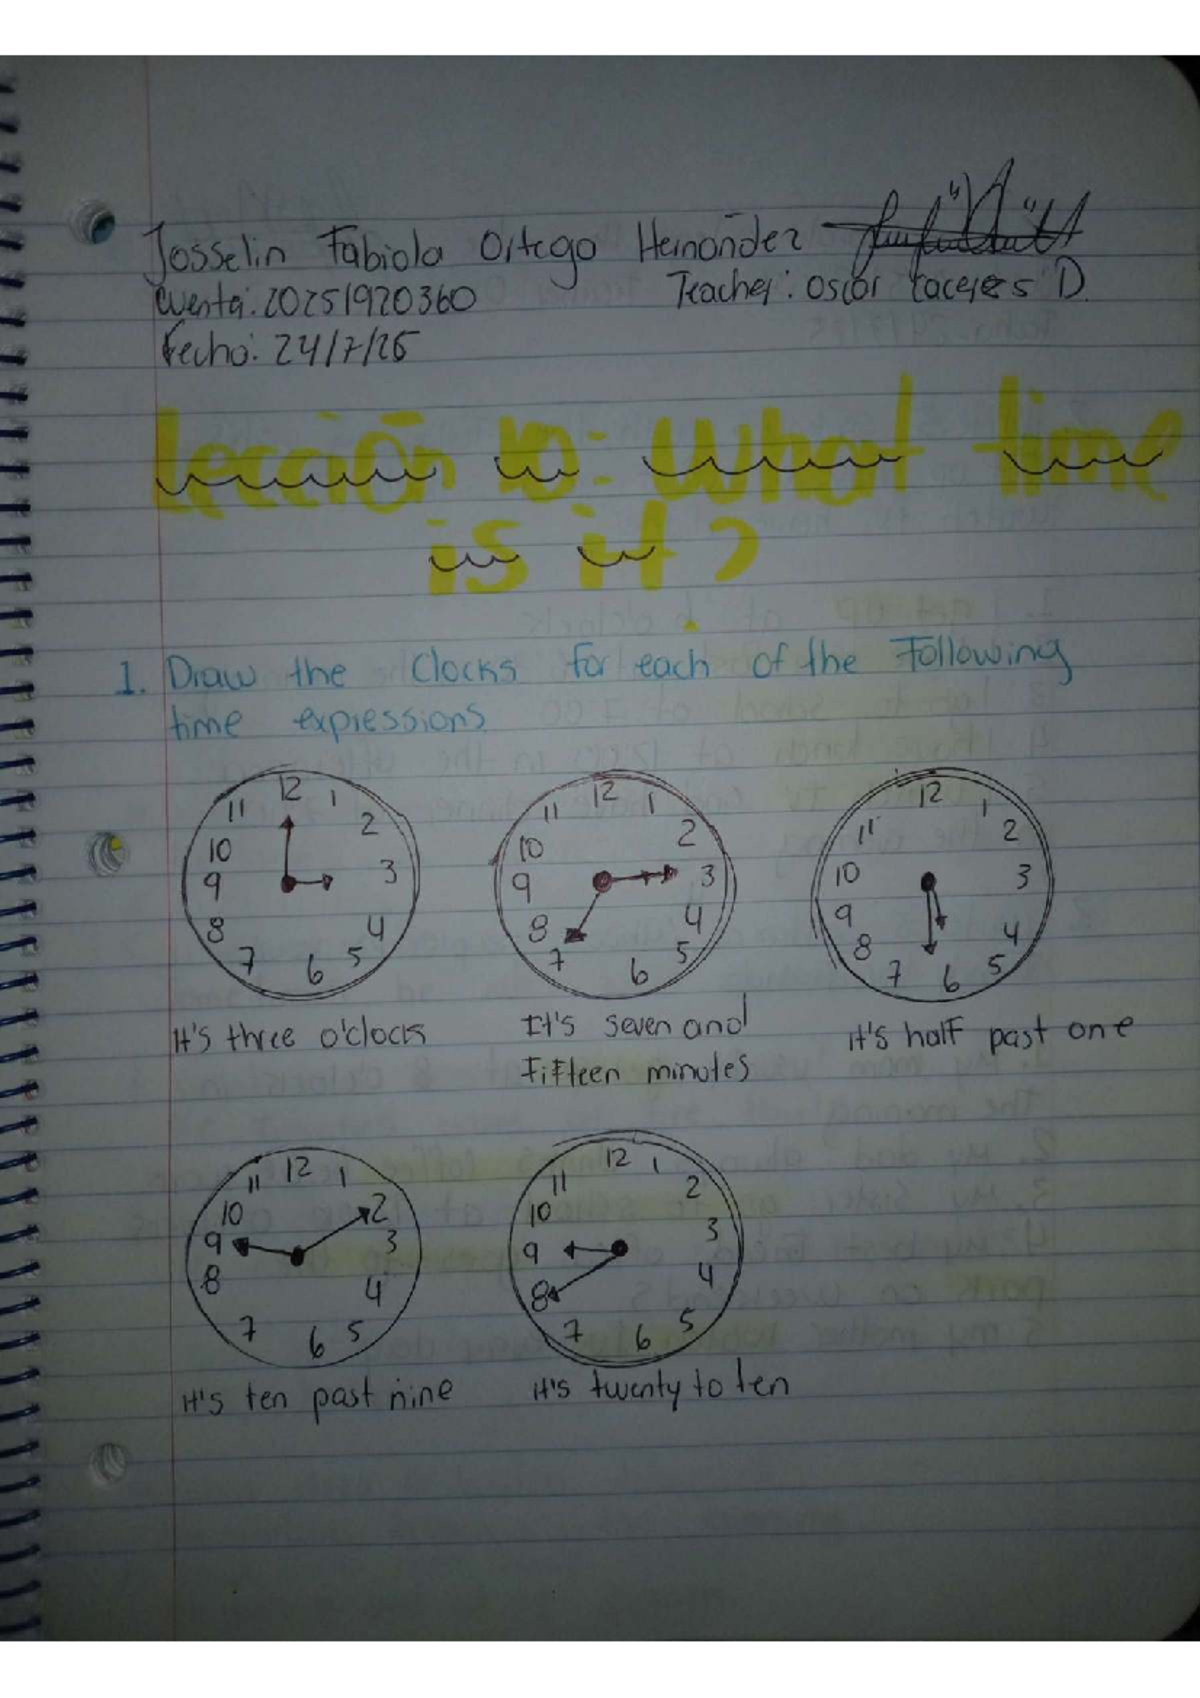 Josselin Fabiola Ortega Hernández
cuenta: 20251920360 Teacher: Oscar Caceres D.
Fecha: 24/7/25
Lección 10: What time
is it?
1. Draw the Clocks for each of the Following
time expressions.
12 1 2 3 4 5 6 7 8 9 10 11
12 1 2 3 4 5 6 7 8 9 10 11
12 1 2 3 4 5 6 7 8 9 10 11
It's three o'clock
It's seven and
Fifteen minutes
it's half past one
12 1 2 3 4 5 6 7 8 9 10 11
12 1 2 3 4 5 6 7 8 9 10 11
it's ten past nine
it's twenty to ten